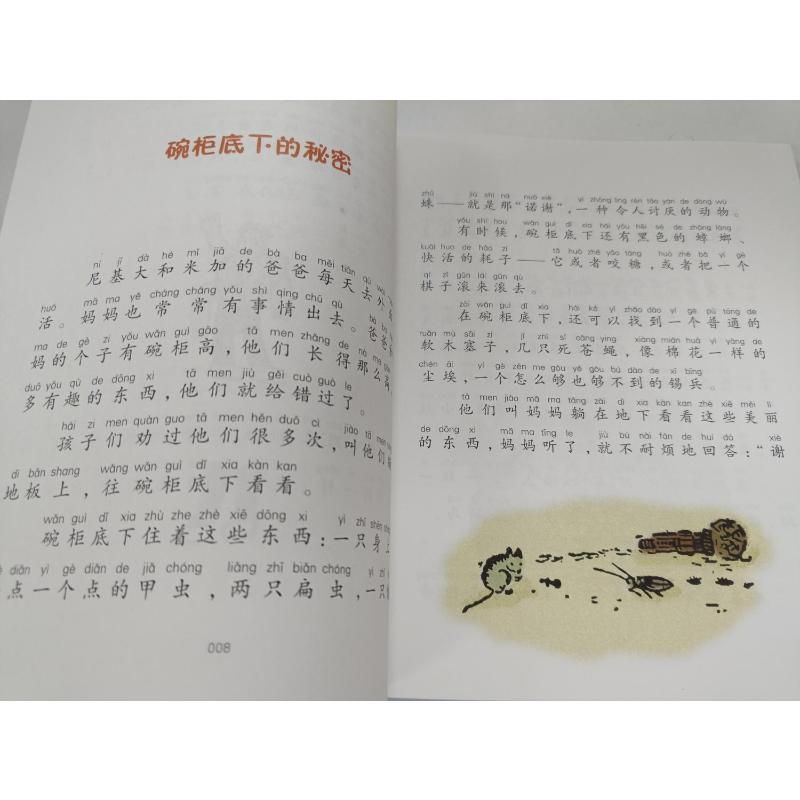 碗柜底下的秘密
ní jī dà hé mǐ jiā de bà ba měi tiān qù wài
尼基大和米加的爸爸每天去外
huó mā ma yě cháng cháng yǒu shì qing chū qù bà ba
活。妈妈也常常有事情出去。爸爸
ma de gè zi yǒu wǎn guì gāo tā men zhǎng de nà me gāo
妈的个子有碗柜高，他们长得那么高
duō yǒu qù de dōng xi tā men jiù gěi cuò guò le
多有趣的东西，他们就给错过了。
hái zi men quàn guo tā men hěn duō cì jiào tā men
孩子们劝过他们很多次，叫他们
dì bǎn shang wǎng wǎn guì dǐ xia kàn kan
地板上，往碗柜底下看看。
wǎn guì dǐ xia zhù zhe zhè xiē dōng xi yì zhī shēn shang
碗柜底下住着这些东西：一只身上
diǎn yí gè diǎn de jiǎ chóng liǎng zhī biǎn chóng yì zhī
点一个点的甲虫，两只扁虫，一只
008
zhū jiù shì nà nuò xiè yì zhǒng lìng rén tǎo yàn de dòng wù
蛛——就是那“诺谢”，一种令人讨厌的动物。
yǒu shí hou wǎn guì dǐ xia hái yǒu hēi sè de zhāng láng
有时候，碗柜底下还有黑色的蟑螂、
kuài huo de hào zi tā huò zhě yǎo táng huò zhě bǎ yí gè
快活的耗子——它或者咬糖，或者把一个
qí zǐ gǔn lái gǔn qù
棋子滚来滚去。
zài wǎn guì dǐ xia hái kě yǐ zhǎo dào yí gè pǔ tōng de
在碗柜底下，还可以找到一个普通的
ruǎn mù sāi zi jǐ zhī sǐ cāng ying xiàng mián huā yí yàng de
软木塞子，几只死苍蝇，像棉花一样的
chén āi yí gè zěn me gòu yě gòu bú dào de xī bīng
尘埃，一个怎么够也够不到的锡兵。
tā men jiào mā ma tǎng zài dì xia kàn kan zhè xiē měi lì
他们叫妈妈躺在地下看看这些美丽
de dōng xi mā ma tīng le jiù bú nài fán de huí dá xiè
的东西，妈妈听了，就不耐烦地回答：“谢